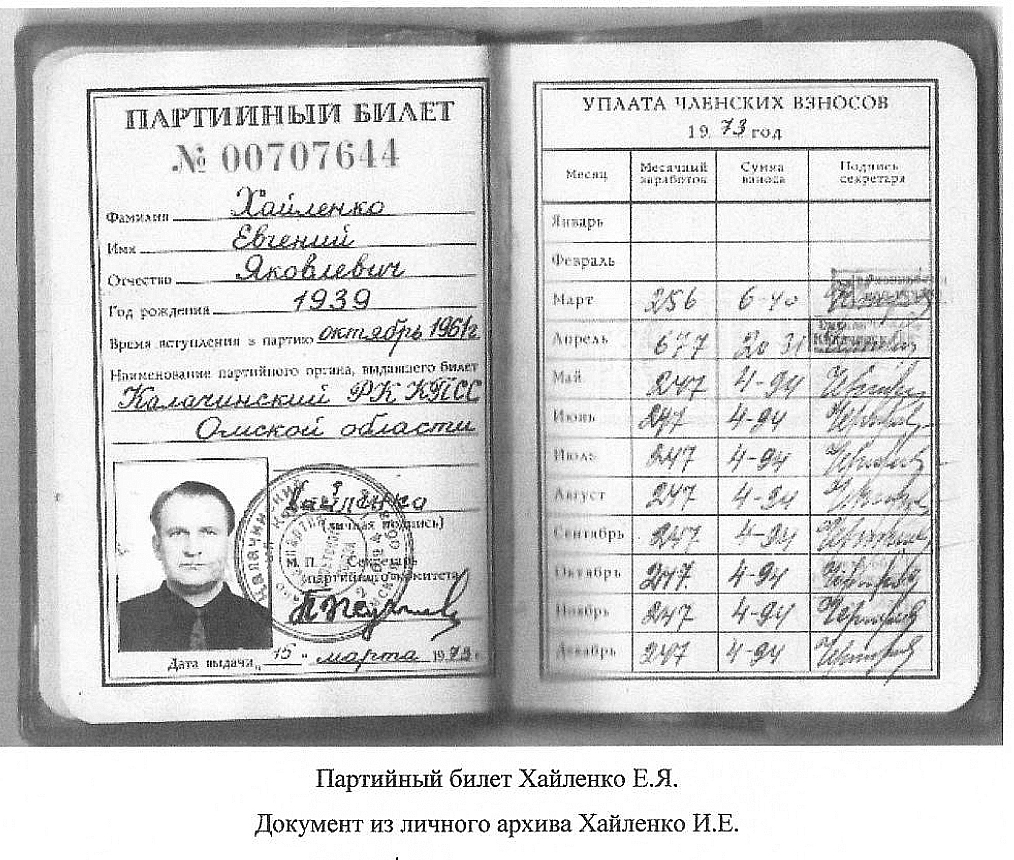 ПАРТИЙНЫЙ БИЛЕТ
№ 00707644
Фамилия Хайленко
Имя Евгений
Отчество Яковлевич
Год рождения 1939
Время вступления в партию октябрь 1961г
Наименование партийного органа, выдавшего билет
Калачинский РК КПСС
Омской области
Хайленко
(личная подпись)
М. П. Секретарь
партийного комитета
Дата выдачи „15" марта 1973 г.
УПЛАТА ЧЛЕНСКИХ ВЗНОСОВ
1973 год
Месяц Месячный заработок Сумма взноса Подпись секретаря
Январь
Февраль
Март 256 6-40
Апрель 677 20 31
Май 247 4-94
Июнь 247 4-94
Июль 247 4-94
Август 247 4-94
Сентябрь 247 4-94
Октябрь 247 4-94
Ноябрь 247 4-94
Декабрь 247 4-94
Партийный билет Хайленко Е.Я.
Документ из личного архива Хайленко И.Е.